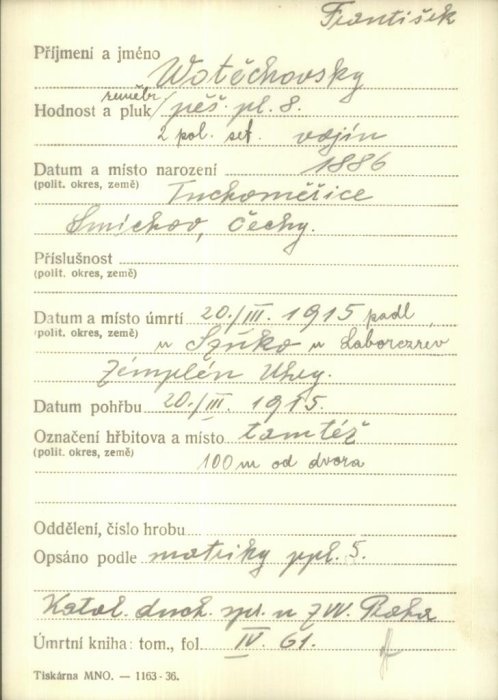 František
Příjmení a jméno Wotěchovsky
zeměbr.
Hodnost a pluk pěš. pl. 8.
2 pol. set. vojín
Datum a místo narození 1886
(polit. okres, země) Tuchoměřice
Smíchov, Čechy.
Příslušnost
(polit. okres, země)
Datum a místo úmrtí 20./III. 1915 padl
(polit. okres, země) u Szúko u Laborczrev
Zémplén Uhry.
Datum pohřbu 20./III. 1915.
Označení hřbitova a místo tamtéž
(polit. okres, země) 100 m od dvora
Oddělení, číslo hrobu
Opsáno podle matriky ppl. 5.
Katol. duch. spr. u ZVV. Praha
Úmrtní kniha: tom., fol. IV. 61.
Tiskárna MNO. — 1163-36.